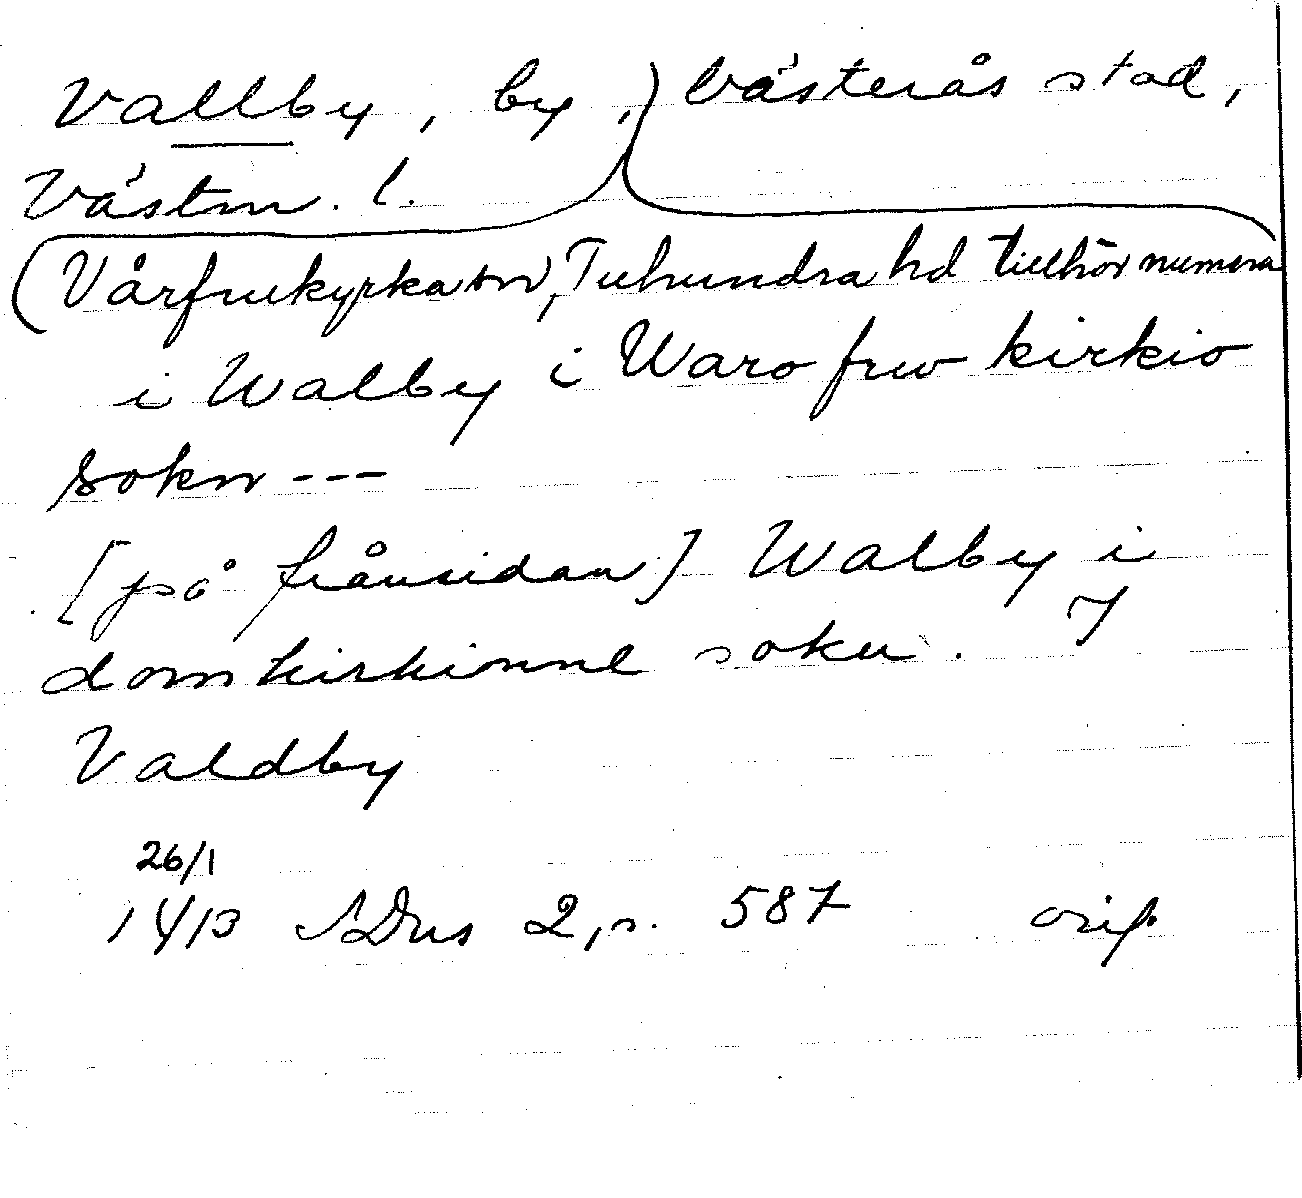 Vallby, by, Västerås stad,
Västm. l.
(Vårfrukyrka sn, Tuhundra hd tillhör numera)
i Walby i Waro frw kirkio
sokn ---
[på frånsidan] Walby i
domkirkionne sokn. 7
Valdby
26/1
1413 SDns 2, s. 587 orig.